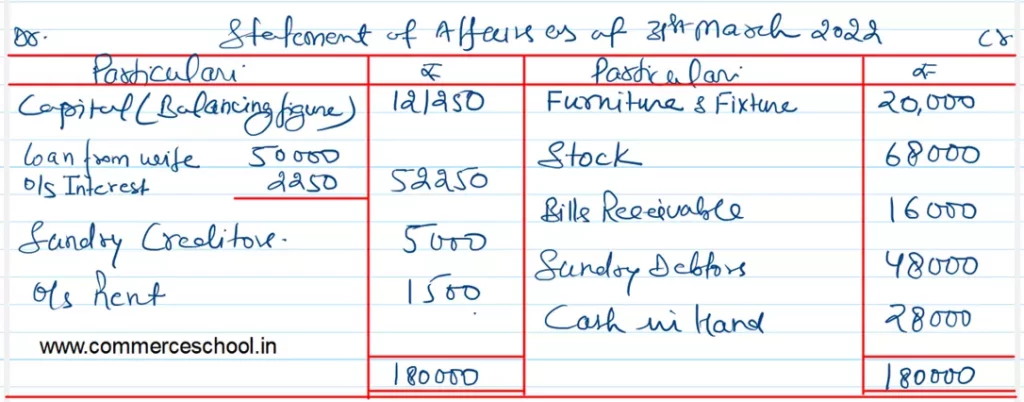 Dr. Statement of Affairs as at 31st March 2022 Cr
Particulars ₹ Particulars ₹
Capital (Balancing figure) 121250 Furniture & Fixture 20,000
Loan from wife 50000 Stock 68000
O/s Interest 2250 52250
Bills Receivable 16000
Sundry Creditors. 5000
Sundry Debtors 48000
O/s Rent 1500
Cash in Hand 28000
www.commerceschool.in
180000 180000